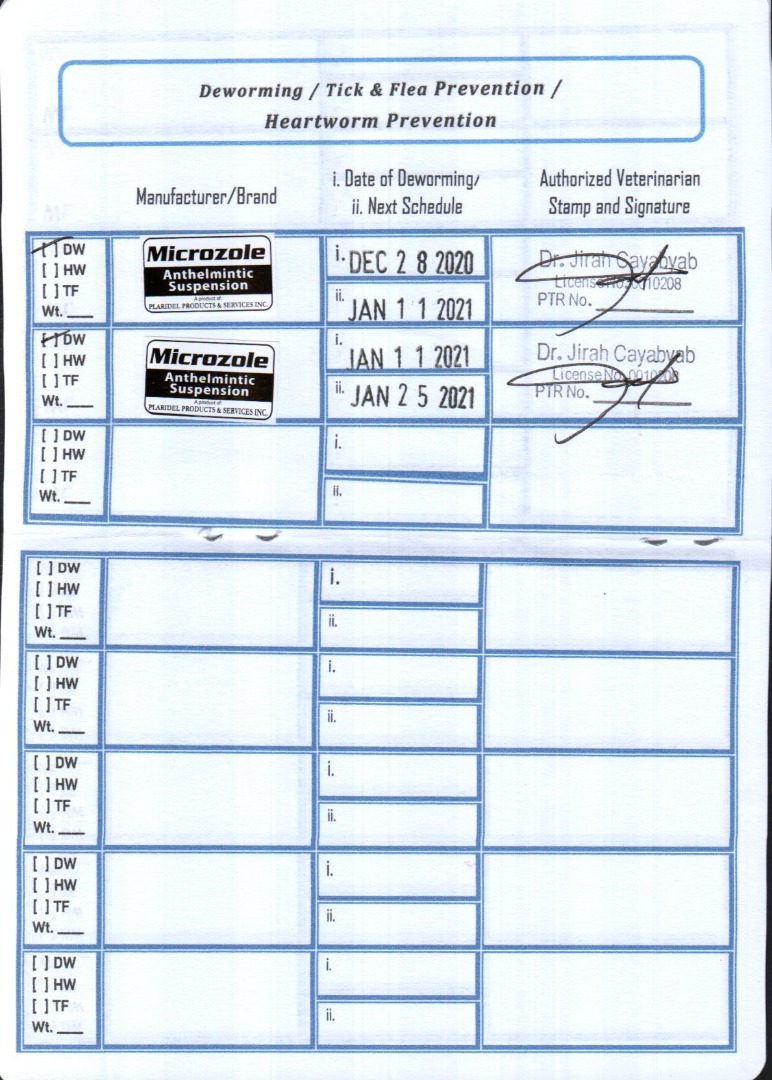 Deworming / Tick & Flea Prevention /
Heartworm Prevention
Manufacturer/Brand
i. Date of Deworming/
ii. Next Schedule
Authorized Veterinarian
Stamp and Signature
[ ] DW
[ ] HW
[ ] TF
Wt. ___
Microzole
Anthelmintic
Suspension
A product of
PLARIDEL PRODUCTS & SERVICES INC.
i. DEC 2 8 2020
ii. JAN 1 1 2021
Dr. Jirah Cayabyab
License No. 0010208
PTR No. ___
[ ] DW
[ ] HW
[ ] TF
Wt. ___
Microzole
Anthelmintic
Suspension
A product of
PLARIDEL PRODUCTS & SERVICES INC.
i. JAN 1 1 2021
ii. JAN 2 5 2021
Dr. Jirah Cayabyab
License No. 0010208
PTR No. ___
[ ] DW
[ ] HW
[ ] TF
Wt. ___
i.
ii.
[ ] DW
[ ] HW
[ ] TF
Wt. ___
i.
ii.
[ ] DW
[ ] HW
[ ] TF
Wt. ___
i.
ii.
[ ] DW
[ ] HW
[ ] TF
Wt. ___
i.
ii.
[ ] DW
[ ] HW
[ ] TF
Wt. ___
i.
ii.
[ ] DW
[ ] HW
[ ] TF
Wt. ___
i.
ii.